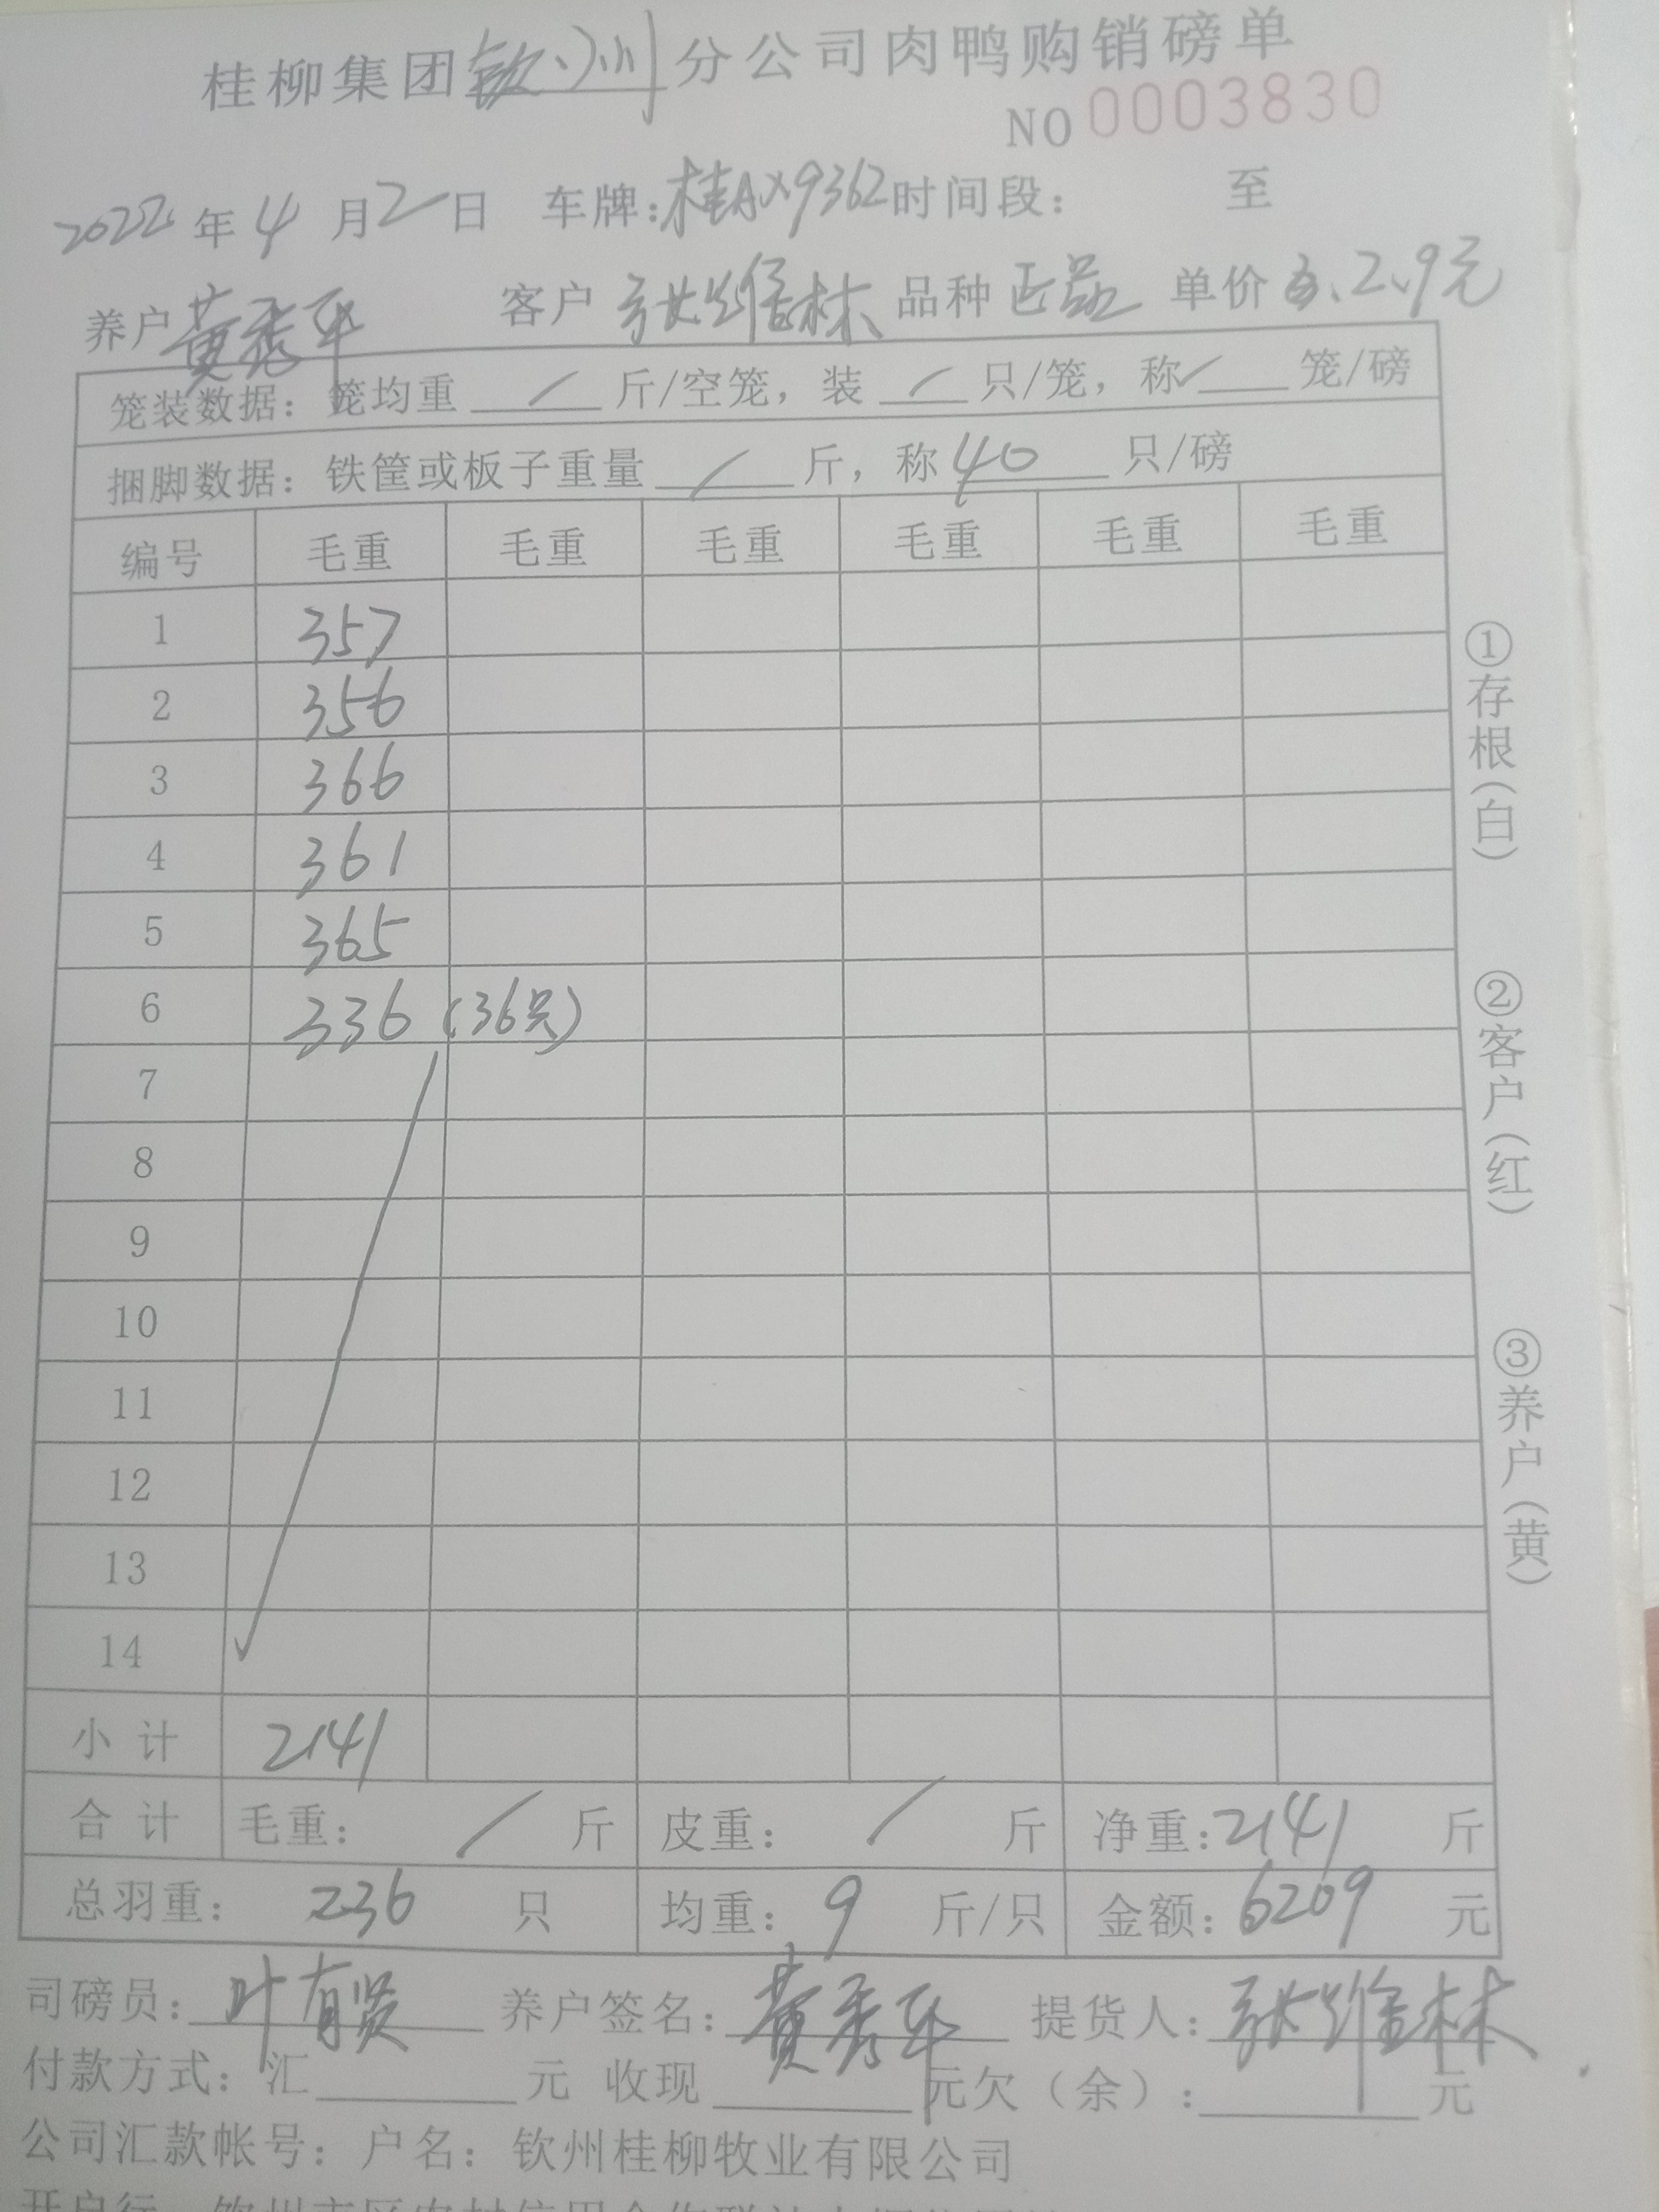 桂柳集团钦州分公司肉鸭购销磅单
NO 0003830
2022年4月2日 车牌:桂AX9362时间段: 至
养户黄秀平 客户 张维林 品种 正品 单价 2.9元
笼装数据: 笼均重 / 斤/空笼, 装 / 只/笼, 称 / 笼/磅
捆脚数据: 铁筐或板子重量 / 斤, 称 40 只/磅
编号 毛重 毛重 毛重 毛重 毛重 毛重
1 357
2 356
3 366
4 361
5 365
6 336 (36只)
7
8
9
10
11
12
13
14
小计 2141
合计 毛重: / 斤 皮重: / 斤 净重:2141 斤
总羽重: 236 只 均重: 9 斤/只 金额: 6209 元
①存根(白)
②客户(红)
③养户(黄)
司磅员: 叶有贤 养户签名: 黄秀平 提货人: 张维林
付款方式: 汇 元 收现 元欠(余): 元
公司汇款帐号: 户名: 钦州桂柳牧业有限公司